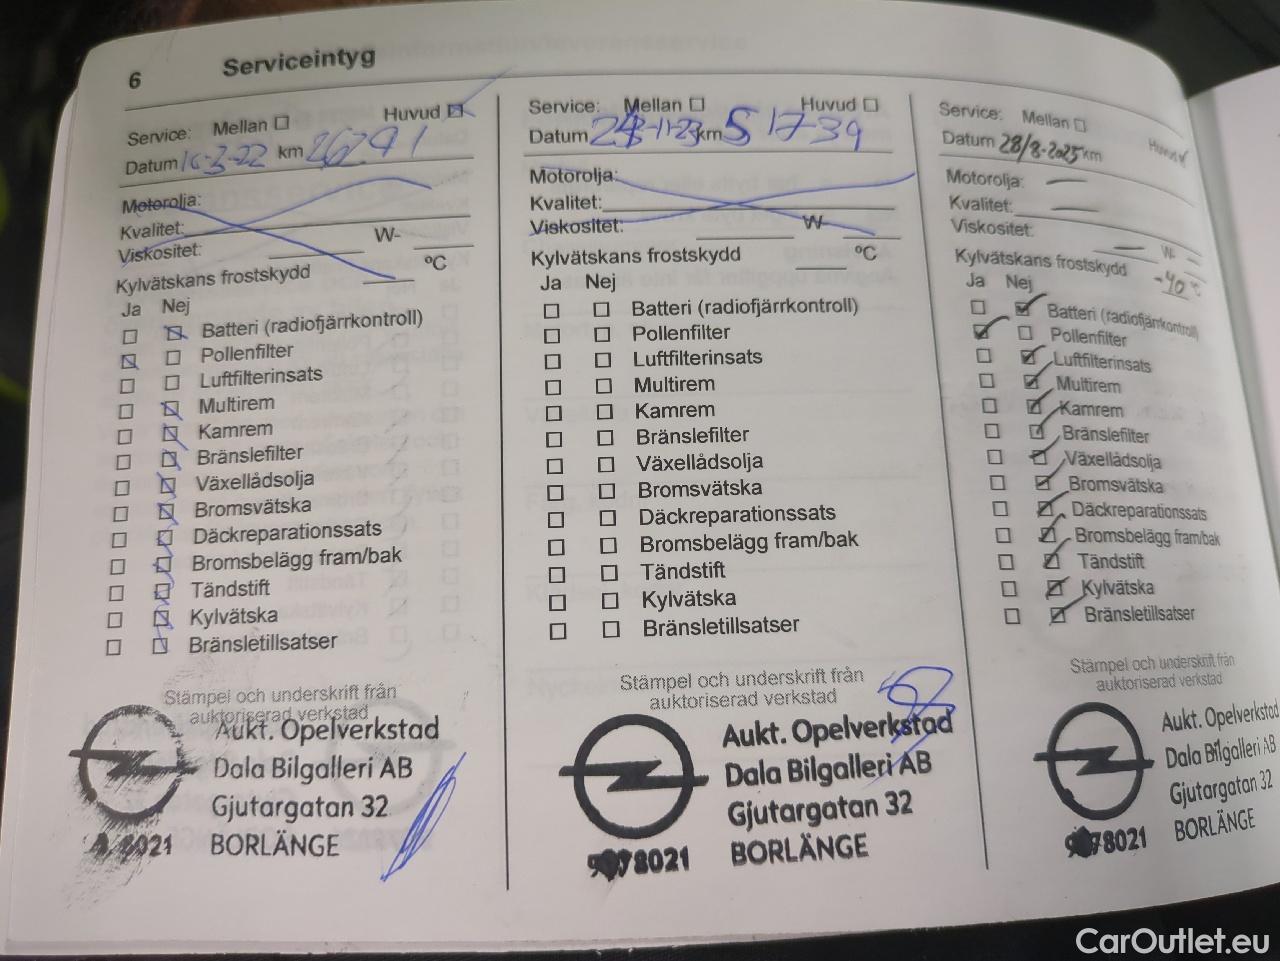 6 Serviceintyg
Service: Mellan Huvud
Datum 16-3-22 km 26791
Motorolja:
Kvalitet:
Viskositet: W-
Kylvätskans frostskydd °C
Ja Nej
Batteri (radiofjärrkontroll)
Pollenfilter
Luftfilterinsats
Multirem
Kamrem
Bränslefilter
Växellådsolja
Bromsvätska
Däckreparationssats
Bromsbelägg fram/bak
Tändstift
Kylvätska
Bränsletillsatser
Stämpel och underskrift från
auktoriserad verkstad
Aukt. Opelverkstad
Dala Bilgalleri AB
Gjutargatan 32
8021 BORLÄNGE
Service: Mellan Huvud
Datum km 51739
Motorolja:
Kvalitet:
Viskositet: W-
Kylvätskans frostskydd °C
Ja Nej
Batteri (radiofjärrkontroll)
Pollenfilter
Luftfilterinsats
Multirem
Kamrem
Bränslefilter
Växellådsolja
Bromsvätska
Däckreparationssats
Bromsbelägg fram/bak
Tändstift
Kylvätska
Bränsletillsatser
Stämpel och underskrift från
auktoriserad verkstad
Aukt. Opelverkstad
Dala Bilgalleri AB
Gjutargatan 32
978021 BORLÄNGE
Service: Mellan Huvud
Datum 28/8-2025 km
Motorolja: —
Kvalitet: —
Viskositet: — W- —
Kylvätskans frostskydd -40 °C
Ja Nej
Batteri (radiofjärrkontroll)
Pollenfilter
Luftfilterinsats
Multirem
Kamrem
Bränslefilter
Växellådsolja
Bromsvätska
Däckreparationssats
Bromsbelägg fram/bak
Tändstift
Kylvätska
Bränsletillsatser
Stämpel och underskrift från
auktoriserad verkstad
Aukt. Opelverkstad
Dala Bilgalleri AB
Gjutargatan 32
978021 BORLÄNGE
CarOutlet.eu